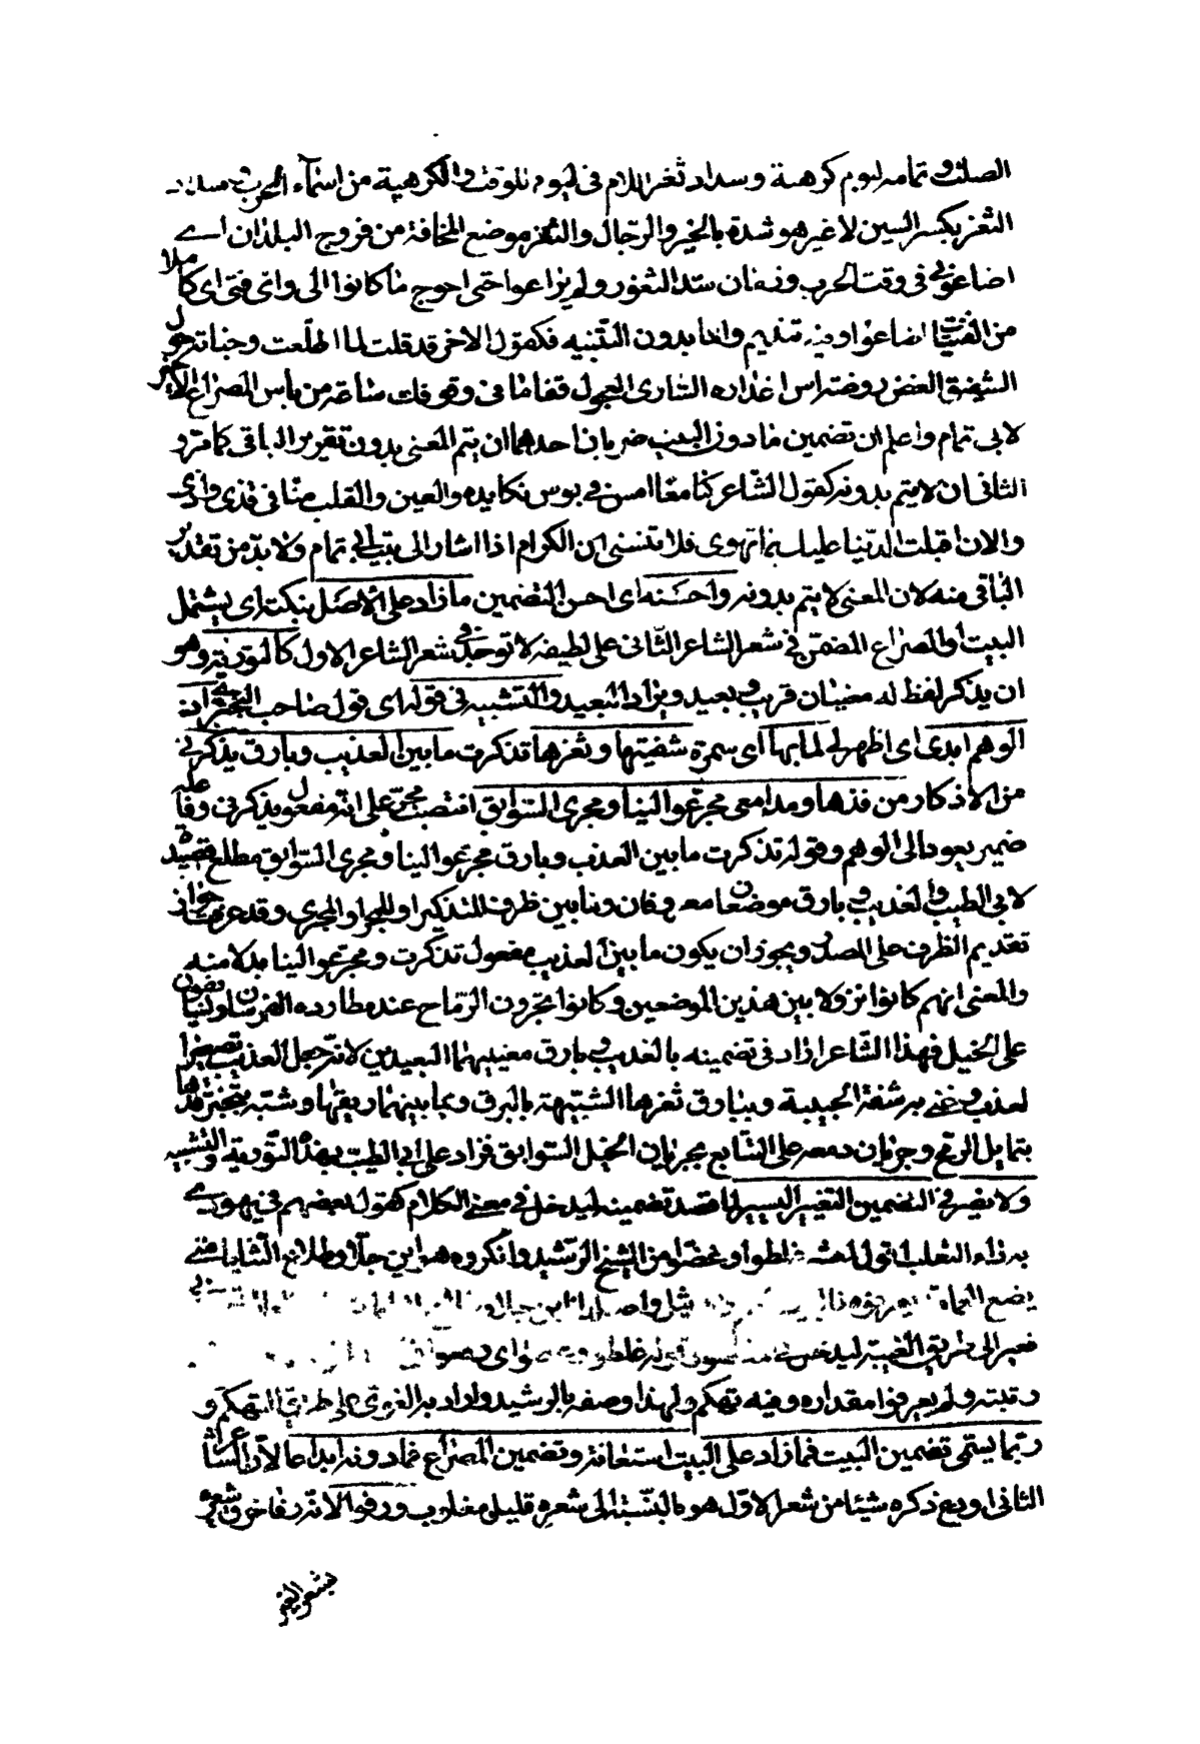 الصلت وتمامه ليوم كريهة وسداد ثغر اللام فى ليوم للوقت والكريهة من اسماء الحرب وسداد
الثغر بكسر السين لا غير هو شدة بالخيل والرجال والثغر موضع المخافة من فروج البلدان اے
اضاعونى فى وقت الحرب وزمان سد الثغور ولم يراعوا حتى احوج ما كانوا الى واى فتى اى كاملا
من الفتيان اضاعوا وفيه تنديم واما بدون التنبيه فكقول الاخر قد قلت لما اطلعت وجناته حول
الشقيق الغض روضة اس اعذاره السارى العجول ترفقا ما فى وقوفك ساعة من باس المصراع الاخير
لابى تمام واعلم ان تضمين ما دون البيت ضربان احدهما ان يتم المعنى بدون تقدير الباقى كما مر و
الثانى ان لا يتم بدونه كقول الشاعر كنا معا امس فى بوس نكابده والعين والقلب منا فى قذى واذى
والان اقبلت الدنيا عليك بما تهوى فلا تنسنى ان الكرام اذا اشار الى بيت ابى تمام ولا بد من تقدير
الباقى منه لان المعنى لا يتم بدونه واحسنه اى احسن التضمين ما زاد على الاصل بنكتة اى يشتمل
البيت او المصراع المضمن فى شعر الشاعر الثانى على لطيفة لا توجد فى شعر الشاعر الاول كالتورية وهو
ان يذكر لفظ له معنيان قريب وبعيد ويراد البعيد والتشبيه فى قوله اى قول صاحب التحبير اذا
الوهم ابدى اى اظهر لى لماها اى سمرة شفتيها وثغرها تذكرت ما بين العذيب وبارق يذكرنى
من الاذكار من قدها ومدامعى مجر عوالينا ومجرى السوابق انتصب مجر على انه مفعول يذكرنى وفاعله
ضمير يعود الى الوهم وقوله تذكرت ما بين العذيب وبارق مجر عوالينا ومجرى السوابق مطلع قصيدة
لابى الطيب والعذيب وبارق موضعان معروفان وما بين ظرف للتذكر او للمجر او المجرى وقد عرفت جواز
تقديم الظرف على المصدر ويجوز ان يكون ما بين العذيب مفعول تذكرت ومجر عوالينا بدلا منه
والمعنى انهم كانوا نزولا بين هذين الموضعين وكانوا يجرون الرماح عند مطاردة الفرسان ويتسابقون
على الخيل فهذا الشاعر اراد فى تضمينه بالعذيب وبارق معنييهما البعيدين لانه جعل العذيب تصغيرا
لعذب وعنى به شفة الحبيبة وببارق ثغرها الشبيهة بالبرق وبما بينهما ريقها وشبه تبختر قدها
بتمايل الرمح وجريان دمعه على التتابع بجريان الخيل السوابق فزاد على ابى الطيب بهذه التورية والتشبيه
ولا يضر فى التضمين التغيير اليسير لما قصد تضمينه ليدخل فى معنى الكلام كقول بعضهم فى يهودے
به داء الثعلب اقول لمعشر غلطوا وغضوا من الشيخ الرشيد وانكروه هو ابن جلا وطلاع الثنايا متى
يضع العمامة يعرفوه فالبيت
فغير الى طريق الغيبة ليدخل فى المقصود قوله غلطوا
رتبته ولم يعرفوا مقداره وفيه تهكم ولهذا وصفه بالرشيد واراد به الغوى على طريق التهكم و
ربما يسمى تضمين البيت فما زاد على البيت استعانة وتضمين المصراع فما دونه ايداعا لان الشاعر
الثانى اودع ذكره شيئا من شعر الاول هو بالنسبة الى شعره قليل مغلوب ورفوا لانه رفا خرق شعره
بشعر الغير